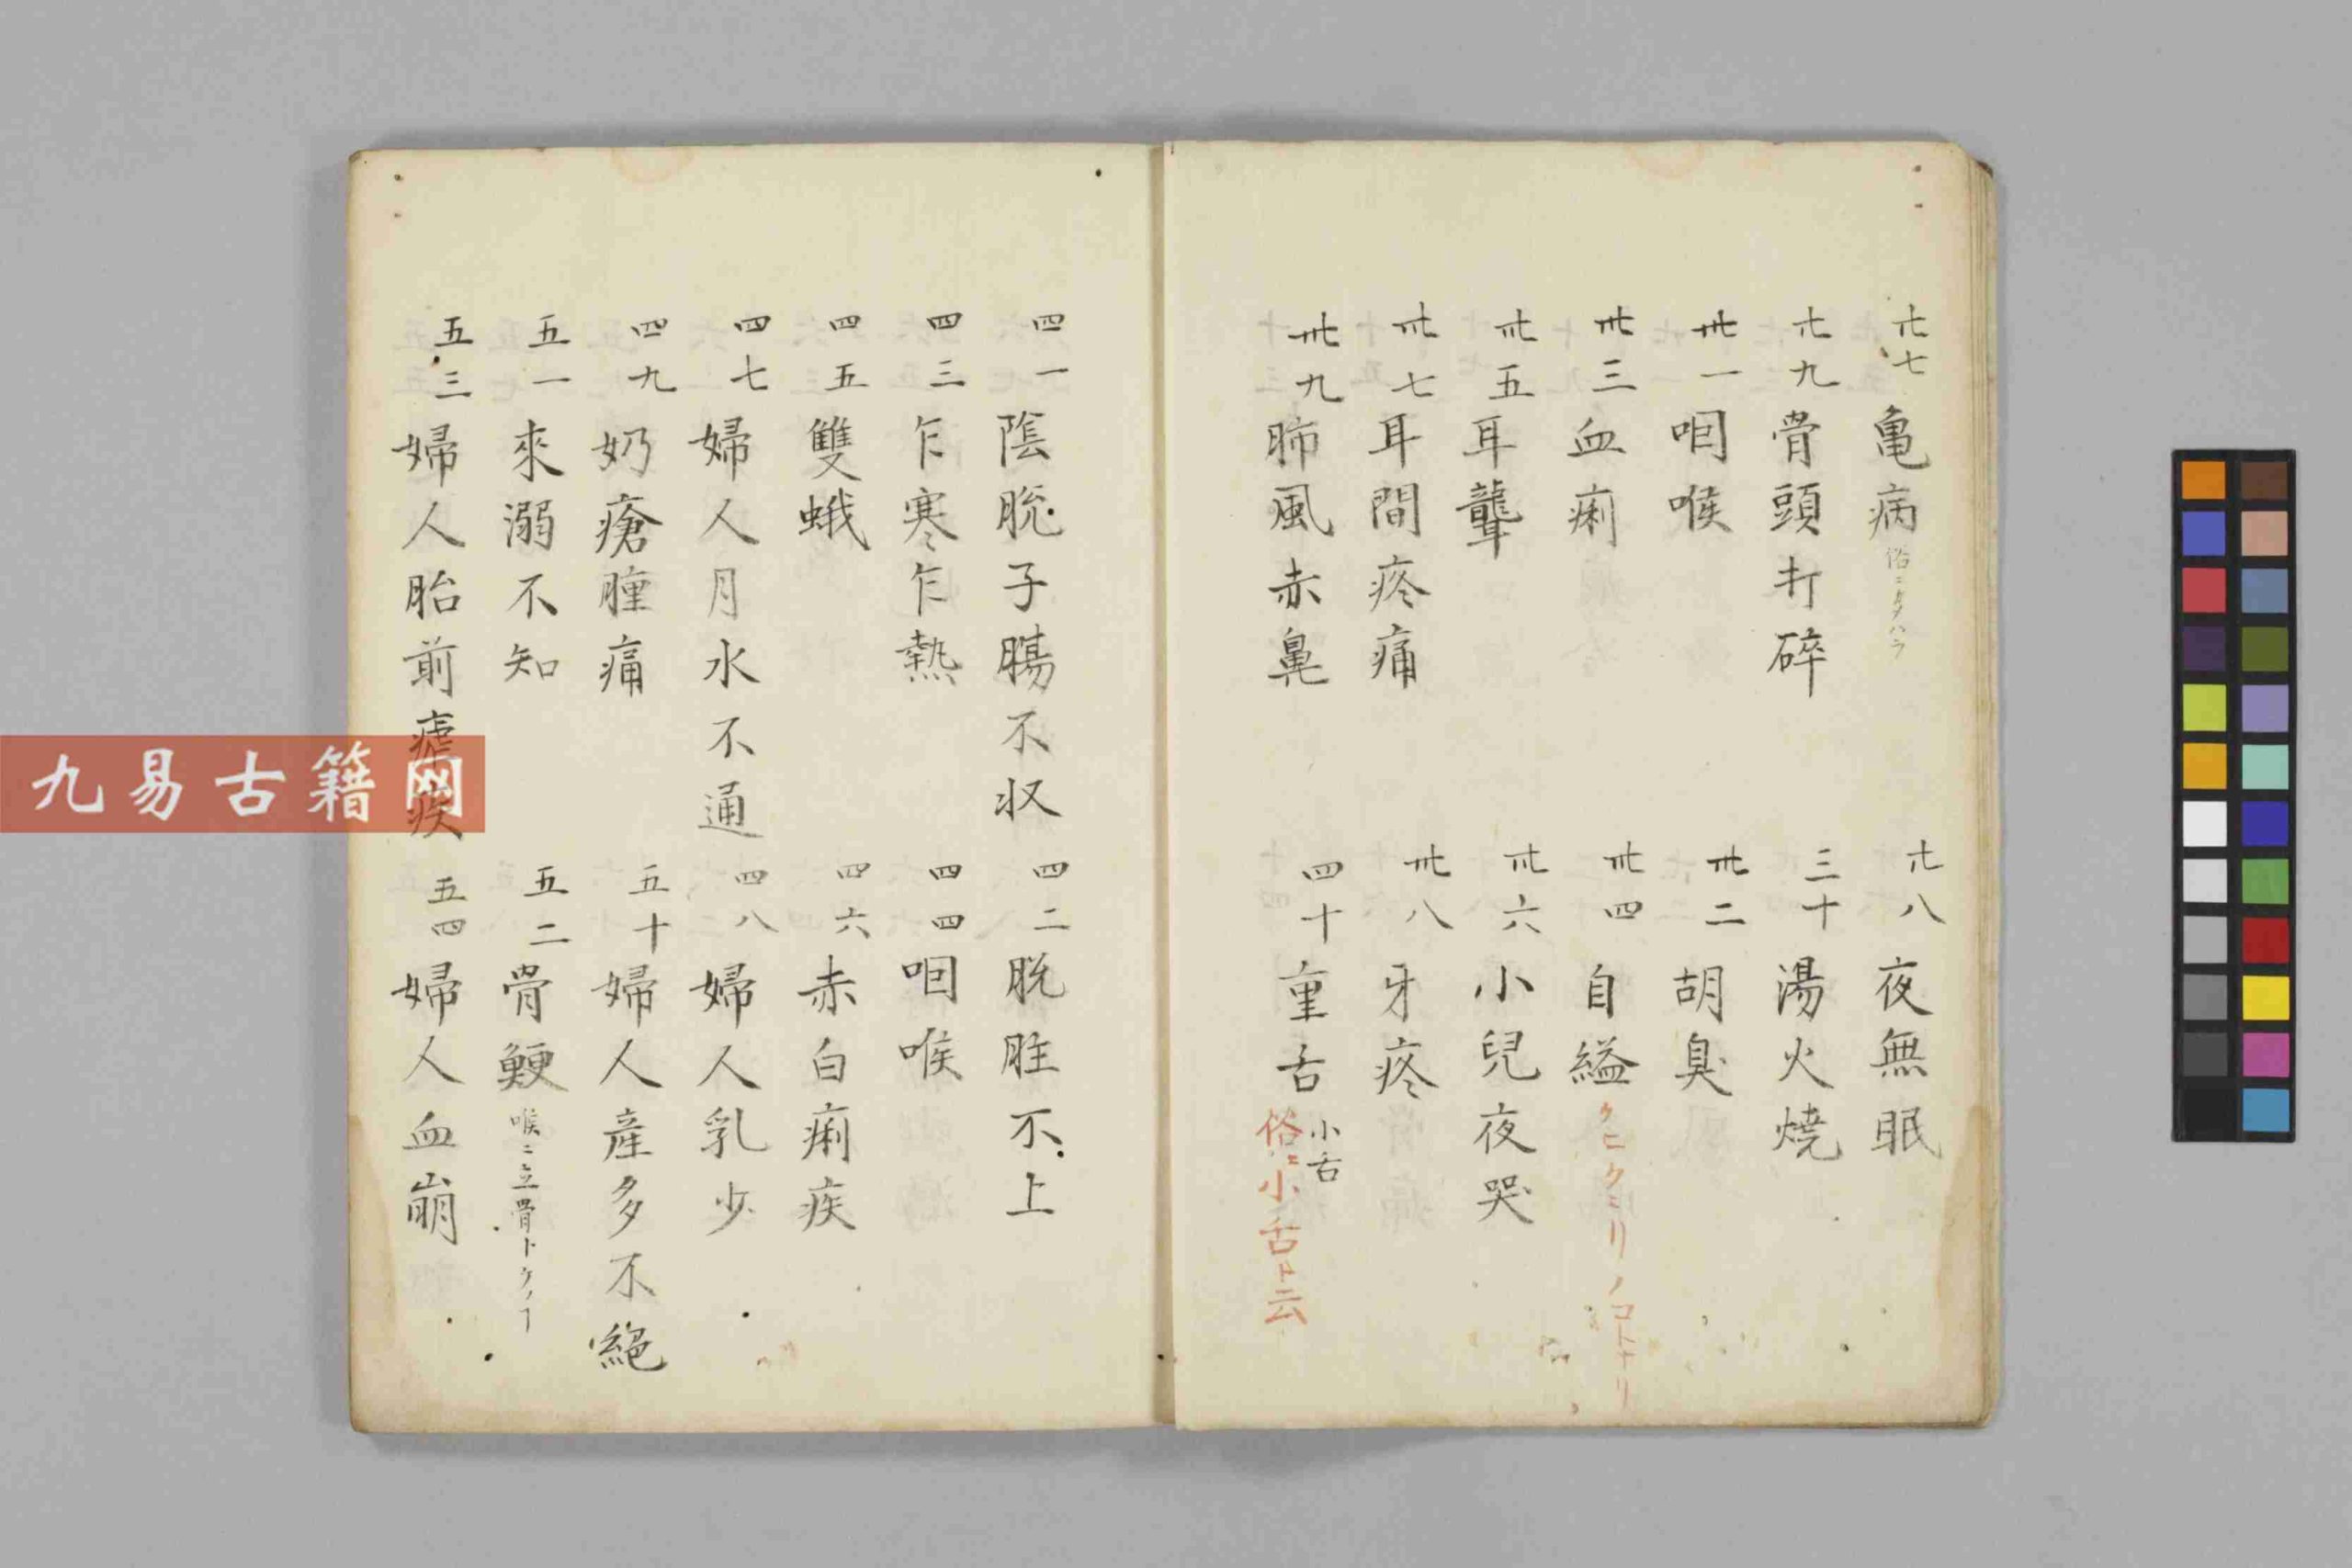 廿七 亀病 俗ニカメハラ
廿八 夜無眠
廿九 骨頭打碎
三十 湯火燒
卅一 咽喉
卅二 胡臭
卅三 血痢
卅四 自縊 クヒクミリノコトナリ
卅五 耳聾
卅六 小兒夜哭
卅七 耳間疼痛
卅八 牙疼
卅九 肺風赤鼻
四十 重舌 小舌 俗ニ小舌ト云
四一 陰脱子腸不収
四二 脱肚不上
四三 乍寒乍熱
四四 咽喉
四五 雙蛾
四六 赤白痢疾
四七 婦人月水不通
四八 婦人乳少
四九 奶瘡腫痛
五十 婦人産多不絕
五一 來溺不知
五二 骨鯁 喉ニ立骨トケノ
五三 婦人胎前瘧疾
五四 婦人血崩
九易古籍网